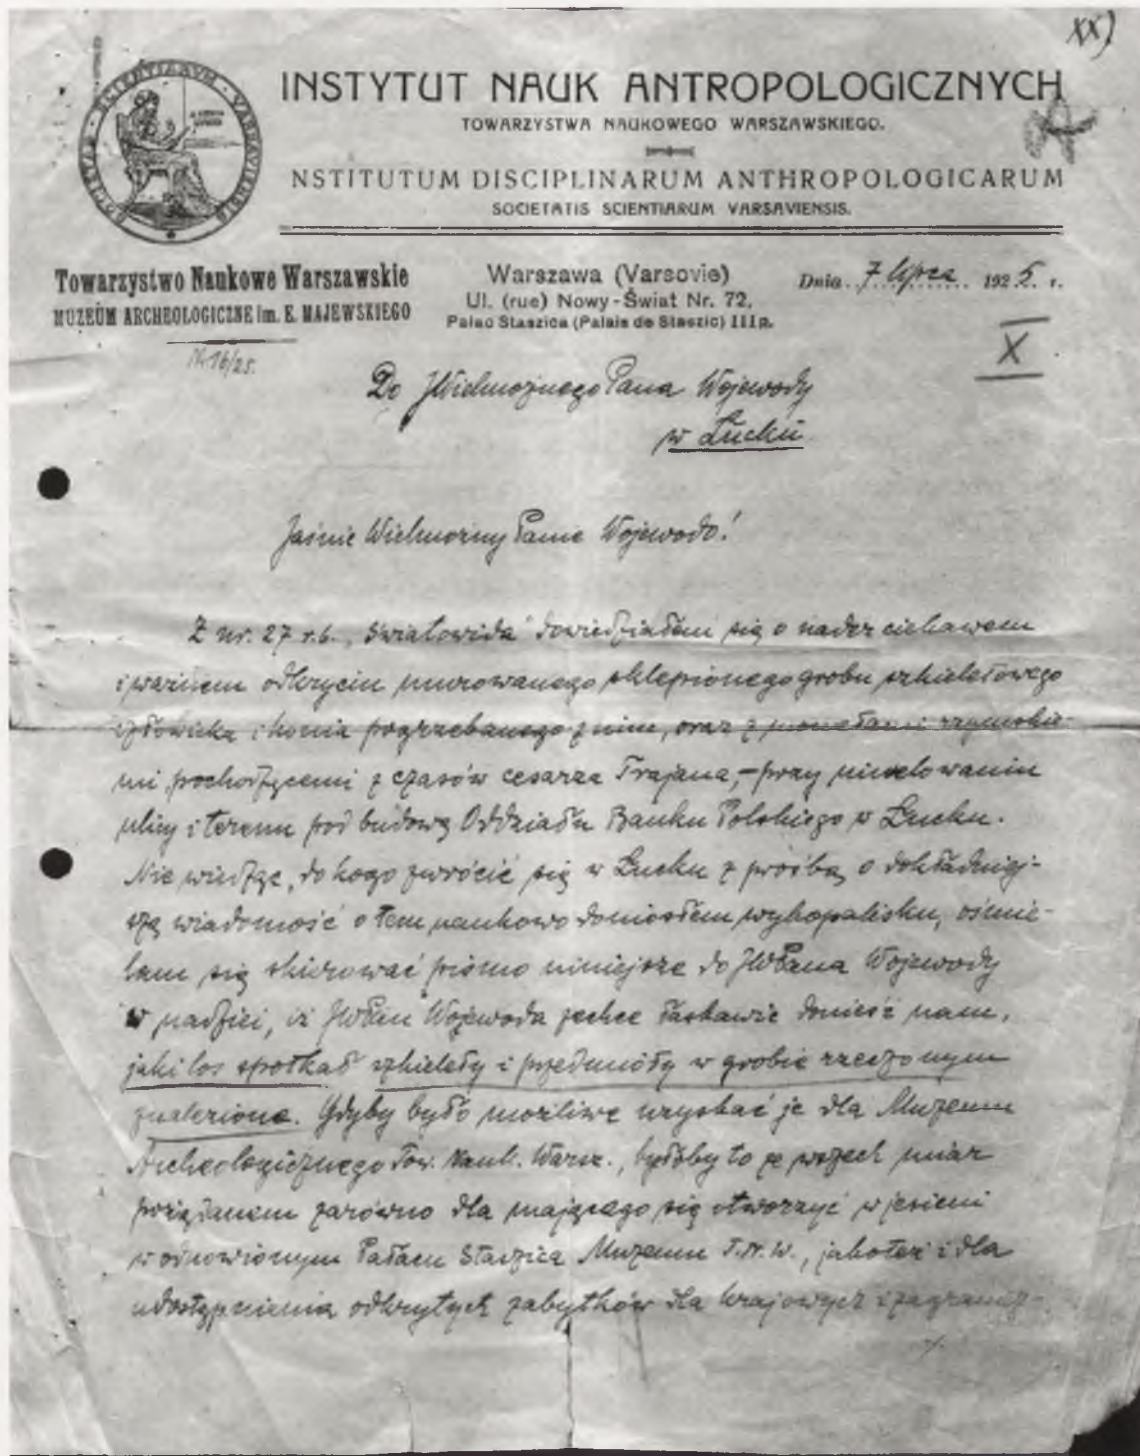 XX)
SOCIETAS · SCIENTIARUM · VARSAVIENSIS
INSTYTUT NAUK ANTROPOLOGICZNYCH
TOWARZYSTWA NAUKOWEGO WARSZAWSKIEGO.
NSTITUTUM DISCIPLINARUM ANTHROPOLOGICARUM
SOCIETATIS SCIENTIARUM VARSAVIENSIS.
Towarzystwo Naukowe Warszawskie
MUZEUM ARCHEOLOGICZNE im. E. MAJEWSKIEGO
Nr. 16/25.
Warszawa (Varsovie)
Ul. (rue) Nowy-Świat Nr. 72,
Palac Staszica (Palais de Staszic) III p.
Dnia 7 lipca 1925 r.
X
Do JWielmożnego Pana Wojewody
w Łucku
Jaśnie Wielmożny Panie Wojewodo!
Z nr. 27 r.b. „Światowida" dowiedziałem się o nader ciekawem
i ważnem odkryciu murowanego sklepionego grobu szkieletowego
człowieka i konia pogrzebanego z nim, oraz z monetami rzymskie-
mi, pochodzącemi z czasów cesarza Trajana, – przy niwelowaniu
ulicy i terenu pod budowę Oddziału Banku Polskiego w Łucku.
Nie wiedząc, do kogo zwrócić się w Łucku z prośbą o dokładniej-
szą wiadomość o tem naukowo doniosłem wykopalisku, ośmie-
lam się skierować pismo niniejsze do JWPana Wojewody
w nadziei, iż JWPan Wojewoda zechce łaskawie donieść nam,
jaki los spotkał szkielety i przedmioty w grobie rzeczonym
znalezione. Gdyby było możliwe uzyskać je dla Muzeum
Archeologicznego Tow. Nauk. Warsz., byłoby to ze wszech miar
pożądanem zarówno dla mającego się otworzyć w jesieni
w odnowionym Pałacu Staszica Muzeum T.N.W., jakoteż i dla
udostępnienia odkrytych zabytków dla krajowych i zagranicz-